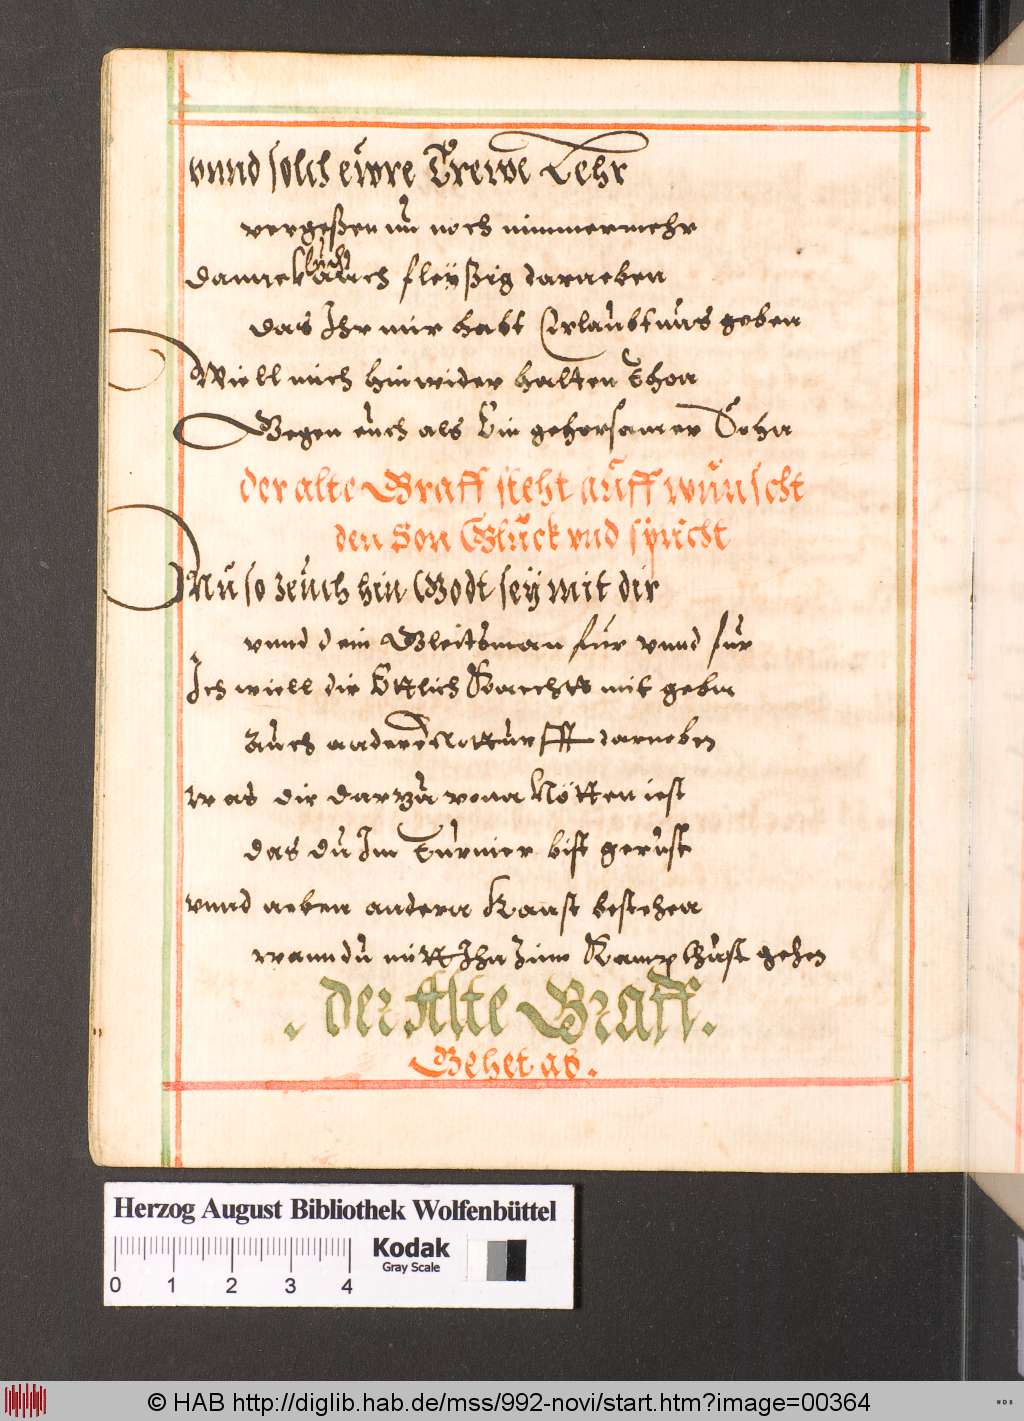 vnnd solch ewre Trewe Lehr
vergeßen nu noch nimmermehr
Dannck auch fleyßig darneben
das Ihr mir habt Erlaubtnus geben
Wiell mich hinwider halten Thon
Gegen euch als Ein gehorsamer Sohn
der alte Graff steht auff wünscht
den Son Glück vnd spricht
Nu so zeuch hin Godt sey mit dir
vnnd dein Gleitsman für vnnd für
Ich wiell dir Ettlich Knechtt mit gebn
Auch andere Notturfft darneben
Was dir darzu vonn Nötten iest
das du Im Turnier bist gerüst
vnnd neben andern Kanst bestehen
wann du mitt Ihn zum Kampf thust gehen
. der Alte Graff .
Gehet ab .
Herzog August Bibliothek Wolfenbüttel
0 1 2 3 4
Kodak
Gray Scale
© HAB http://diglib.hab.de/mss/992-novi/start.htm?image=00364